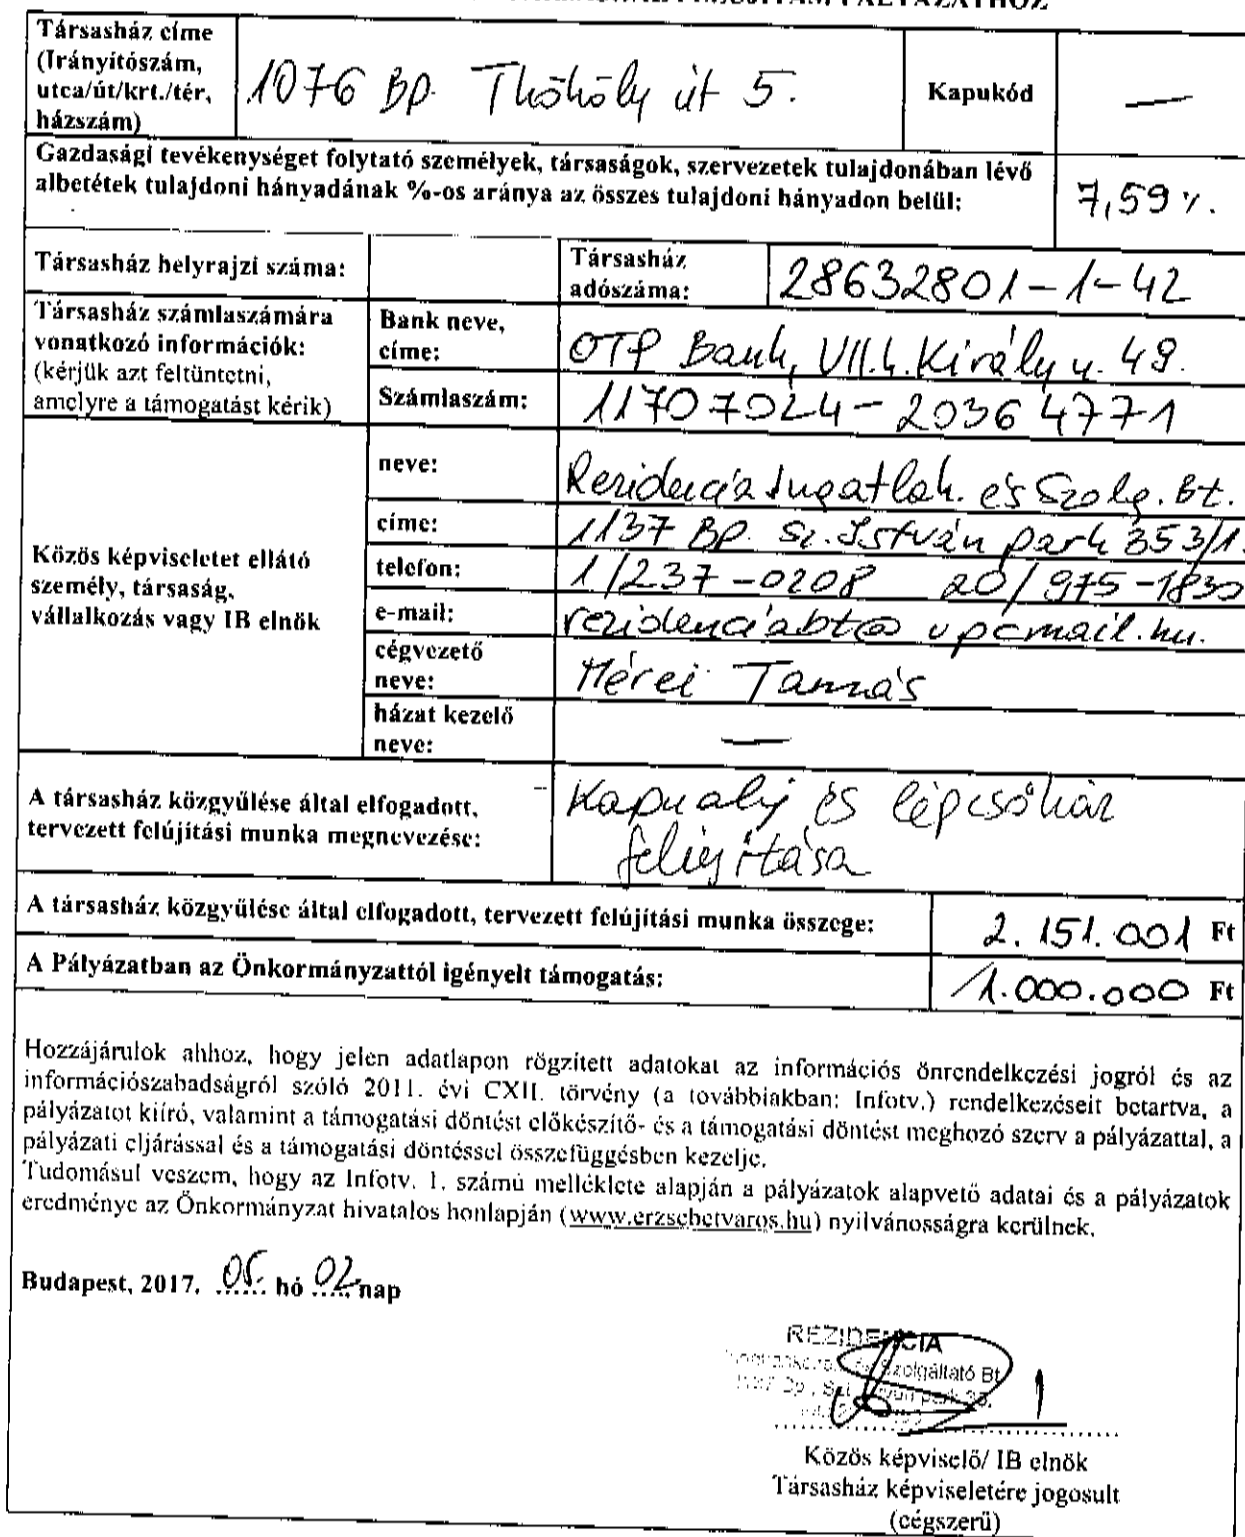 PÁLYÁZATHOZ
Társasház címe
(Irányítószám,
utca/út/krt./tér,
házszám)
1076 Bp. Thököly út 5.
Kapukód
—
Gazdasági tevékenységet folytató személyek, társaságok, szervezetek tulajdonában lévő
albetétek tulajdoni hányadának %-os aránya az összes tulajdoni hányadon belül:
7,59 %.
Társasház helyrajzi száma:
Társasház
adószáma:
28632801-1-42
Társasház számlaszámára
vonatkozó információk:
(kérjük azt feltüntetni,
amelyre a támogatást kérik)
Bank neve,
címe:
OTP Bank, VII.k. Király u. 49.
Számlaszám:
11707024-20364771
Közös képviseletet ellátó
személy, társaság,
vállalkozás vagy IB elnök
neve:
Rezidencia Ingatlak. és Szolg. Bt.
címe:
1137 Bp. Sz. István park 35 3/1.
telefon:
1/237-0208 20/975-1830
e-mail:
rezidenciabt@upcmail.hu.
cégvezető
neve:
Mérei Tamás
házat kezelő
neve:
—
A társasház közgyűlése által elfogadott,
tervezett felújítási munka megnevezése:
Kapualj és lépcsőház
felújítása
A társasház közgyűlése által elfogadott, tervezett felújítási munka összege:
2.151.001 Ft
A Pályázatban az Önkormányzattól igényelt támogatás:
1.000.000 Ft
Hozzájárulok ahhoz, hogy jelen adatlapon rögzített adatokat az információs önrendelkezési jogról és az
információszabadságról szóló 2011. évi CXII. törvény (a továbbiakban: Infotv.) rendelkezéseit betartva, a
pályázatot kiíró, valamint a támogatási döntést előkészítő- és a támogatási döntést meghozó szerv a pályázattal, a
pályázati eljárással és a támogatási döntéssel összefüggésben kezelje.
Tudomásul veszem, hogy az Infotv. 1. számú melléklete alapján a pályázatok alapvető adatai és a pályázatok
eredménye az Önkormányzat hivatalos honlapján (www.erzsebetvaros.hu) nyilvánosságra kerülnek.
Budapest, 2017. 05. hó 02. nap
REZIDENCIA
Szolgáltató Bt
Közös képviselő/ IB elnök
Társasház képviseletére jogosult
(cégszerű)